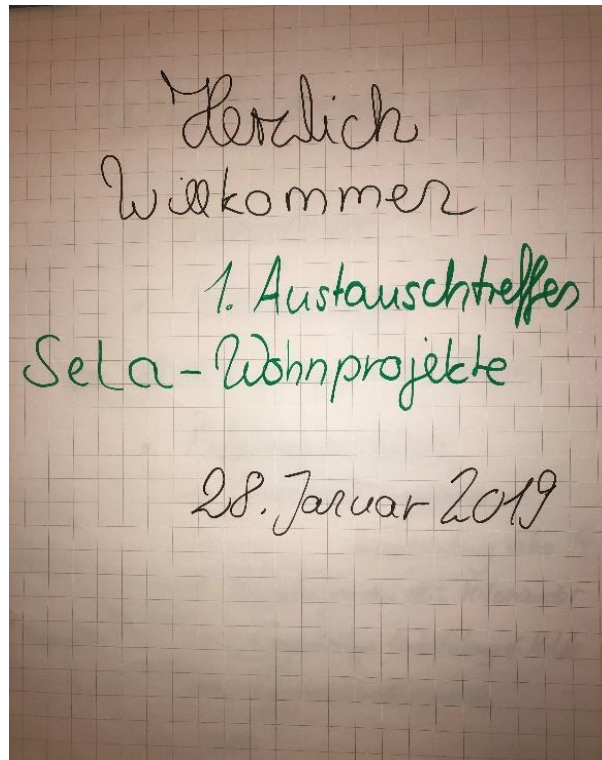 Herzlich
Willkommen
1. Austauschtreffen
SeLa-Wohnprojekte
28. Januar 2019